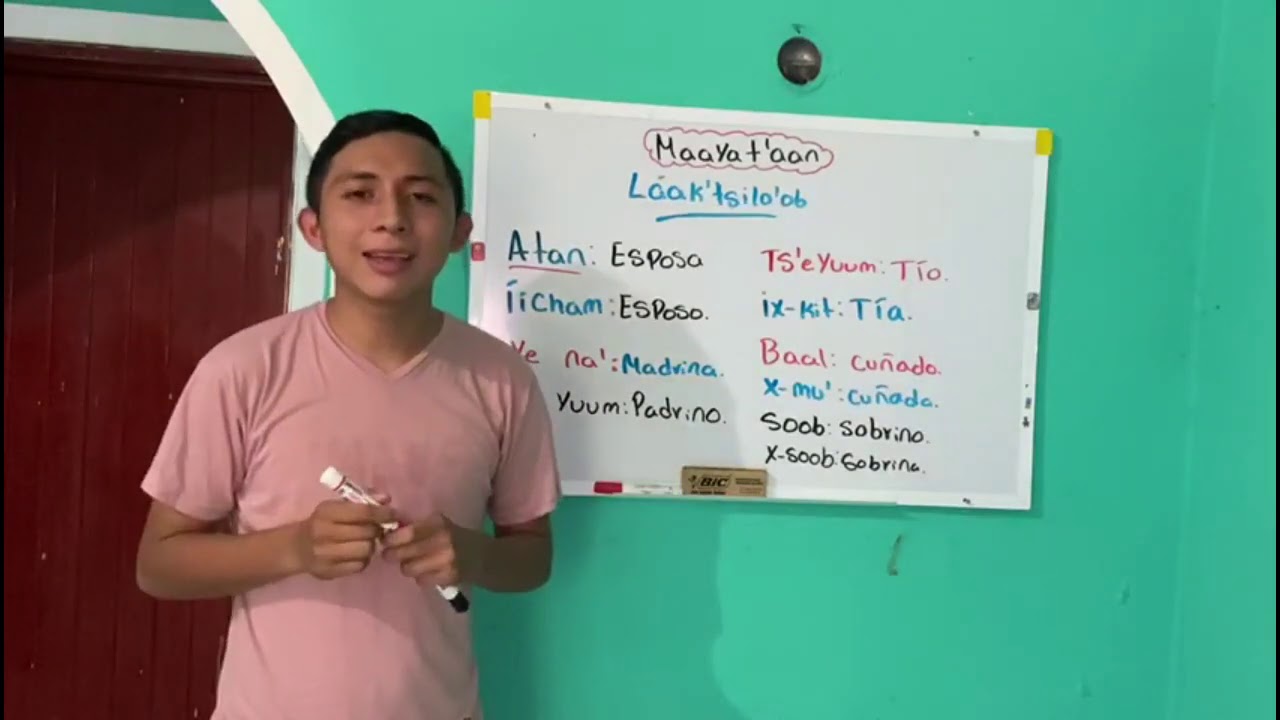 Maayat'aan
Láak'tsilo'ob
Atan: Esposa
Íicham: Esposo.
Ye na': Madrina.
Yuum: Padrino.
Ts'eyuum: Tío.
ix-kit: Tía.
Baal: cuñado.
x-mu': cuñada.
Soob: sobrino.
x-soob: sobrina.
BIC